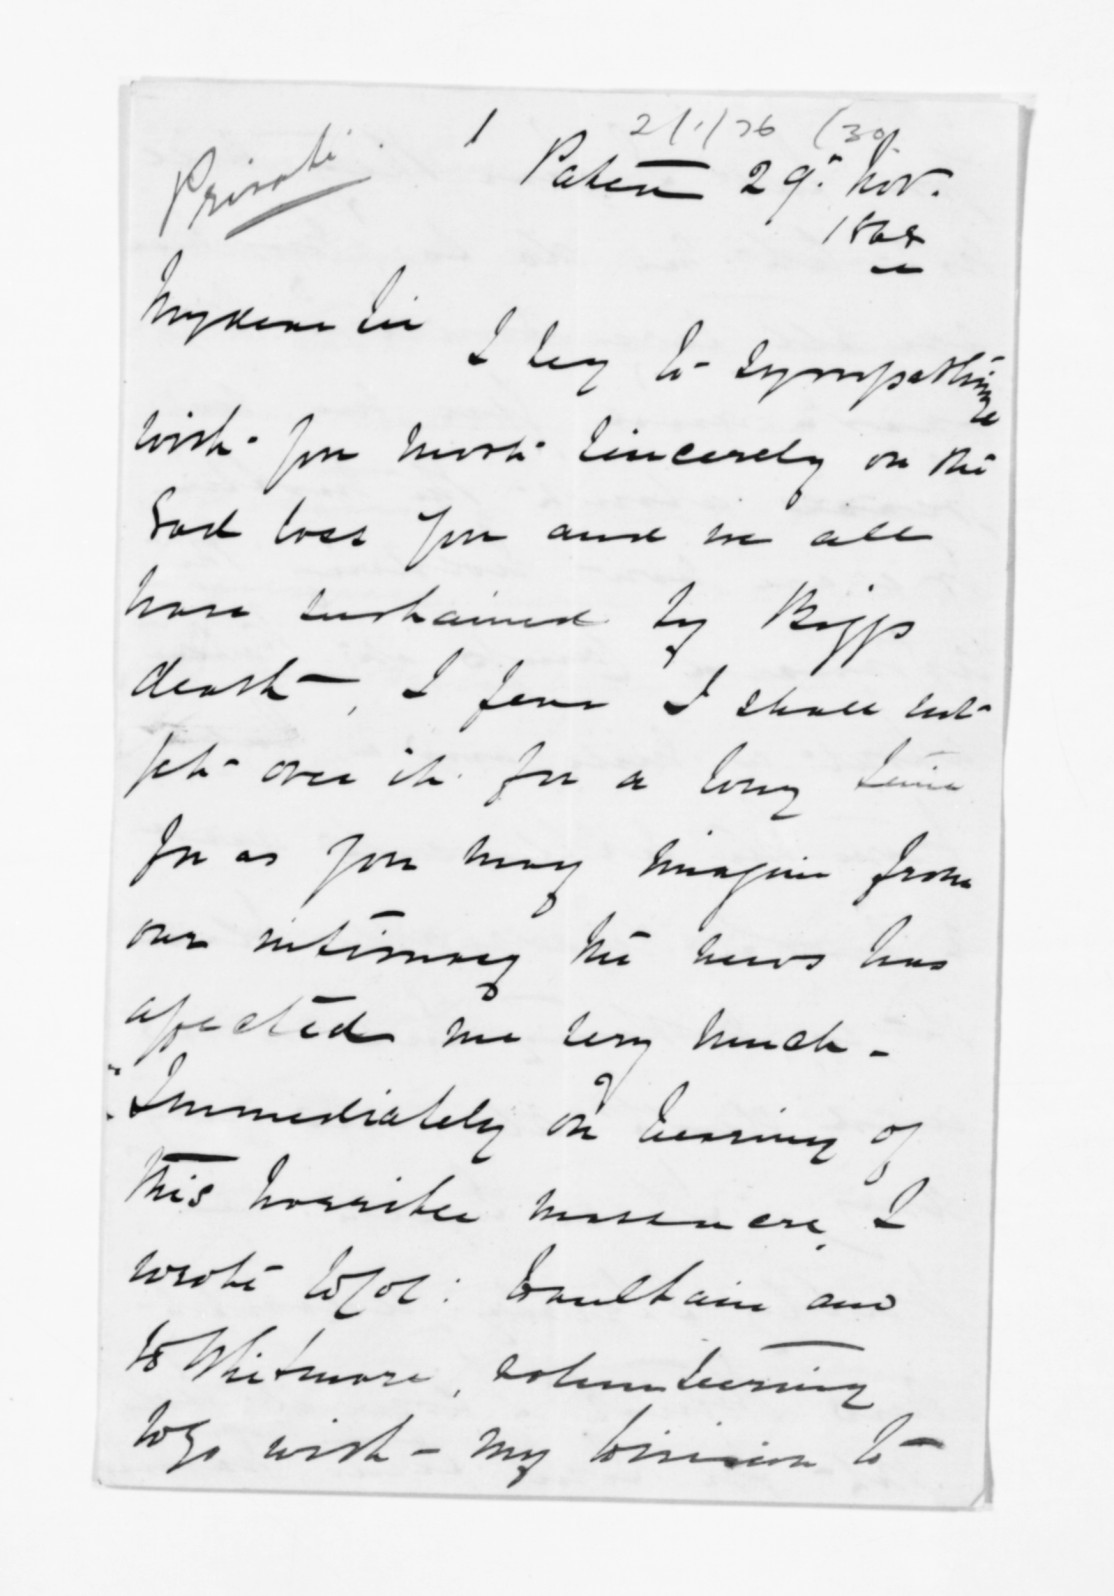 1
2/1/76 (30)
Private
Patea 29th Nov.
1868
My dear Sir
I beg to sympathize
with you most sincerely on the
sad loss you and we all
have sustained by Biggs
death, I fear I shall not
get over it for a long time
for as you may imagine from
our intimacy the news has
affected me very much -
Immediately on hearing of
this horrible massacre, I
wrote to Col: Haultain and
to Whitmore, volunteering
to go with my Division to